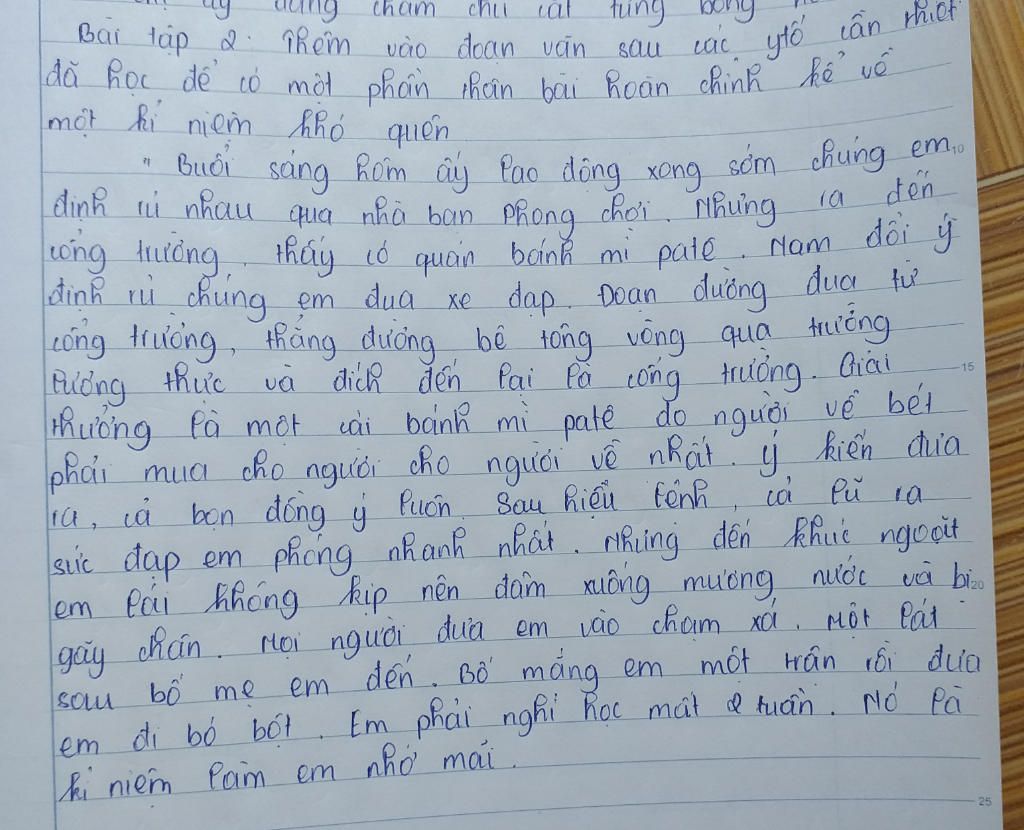 dụng chăm chú cắt từng bông
Bài tập 2. Thêm vào đoạn văn sau các ytố cần thiết
đã học để có một phần thân bài hoàn chỉnh kể về
một kỉ niệm khó quên
" Buổi sáng hôm ấy lao động xong sớm chúng em
định rủ nhau qua nhà bạn Phong chơi. Nhưng ra đến
cổng trường, thấy có quán bánh mì patê. Nam đổi ý
định rủ chúng em đua xe đạp. Đoạn đường đua từ
cổng trường, thẳng đường bê tông vòng qua trường
Lương thực và đích đến lại là cổng trường. Giải
thưởng là một cái bánh mì patê do người về bét
phải mua cho người cho người về nhất. Ý kiến đưa
ra, cả bọn đồng ý luôn. Sau hiệu lệnh, cả lũ ra
sức đạp em phóng nhanh nhất. Nhưng đến khúc ngoặt
em lái không kịp nên đâm xuống mương nước và bị
gãy chân. Mọi người đưa em vào chạm xá. Một lát
sau bố mẹ em đến. Bố mắng em một trận rồi đưa
em đi bó bột. Em phải nghỉ học mất 2 tuần. Nó là
kỉ niệm làm em nhớ mãi.
10
15
20
25